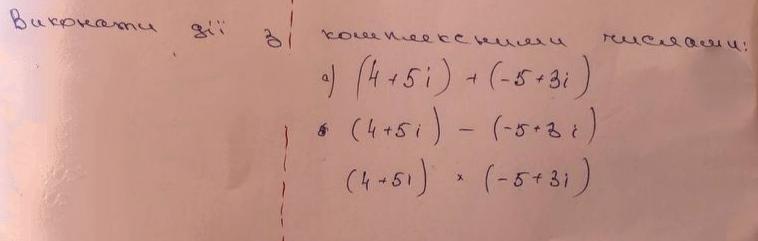 Виконати дії з комплексними числами:
а) (4+5i) + (-5+3i)
б (4+5i) - (-5+3i)
(4+5i) × (-5+3i)